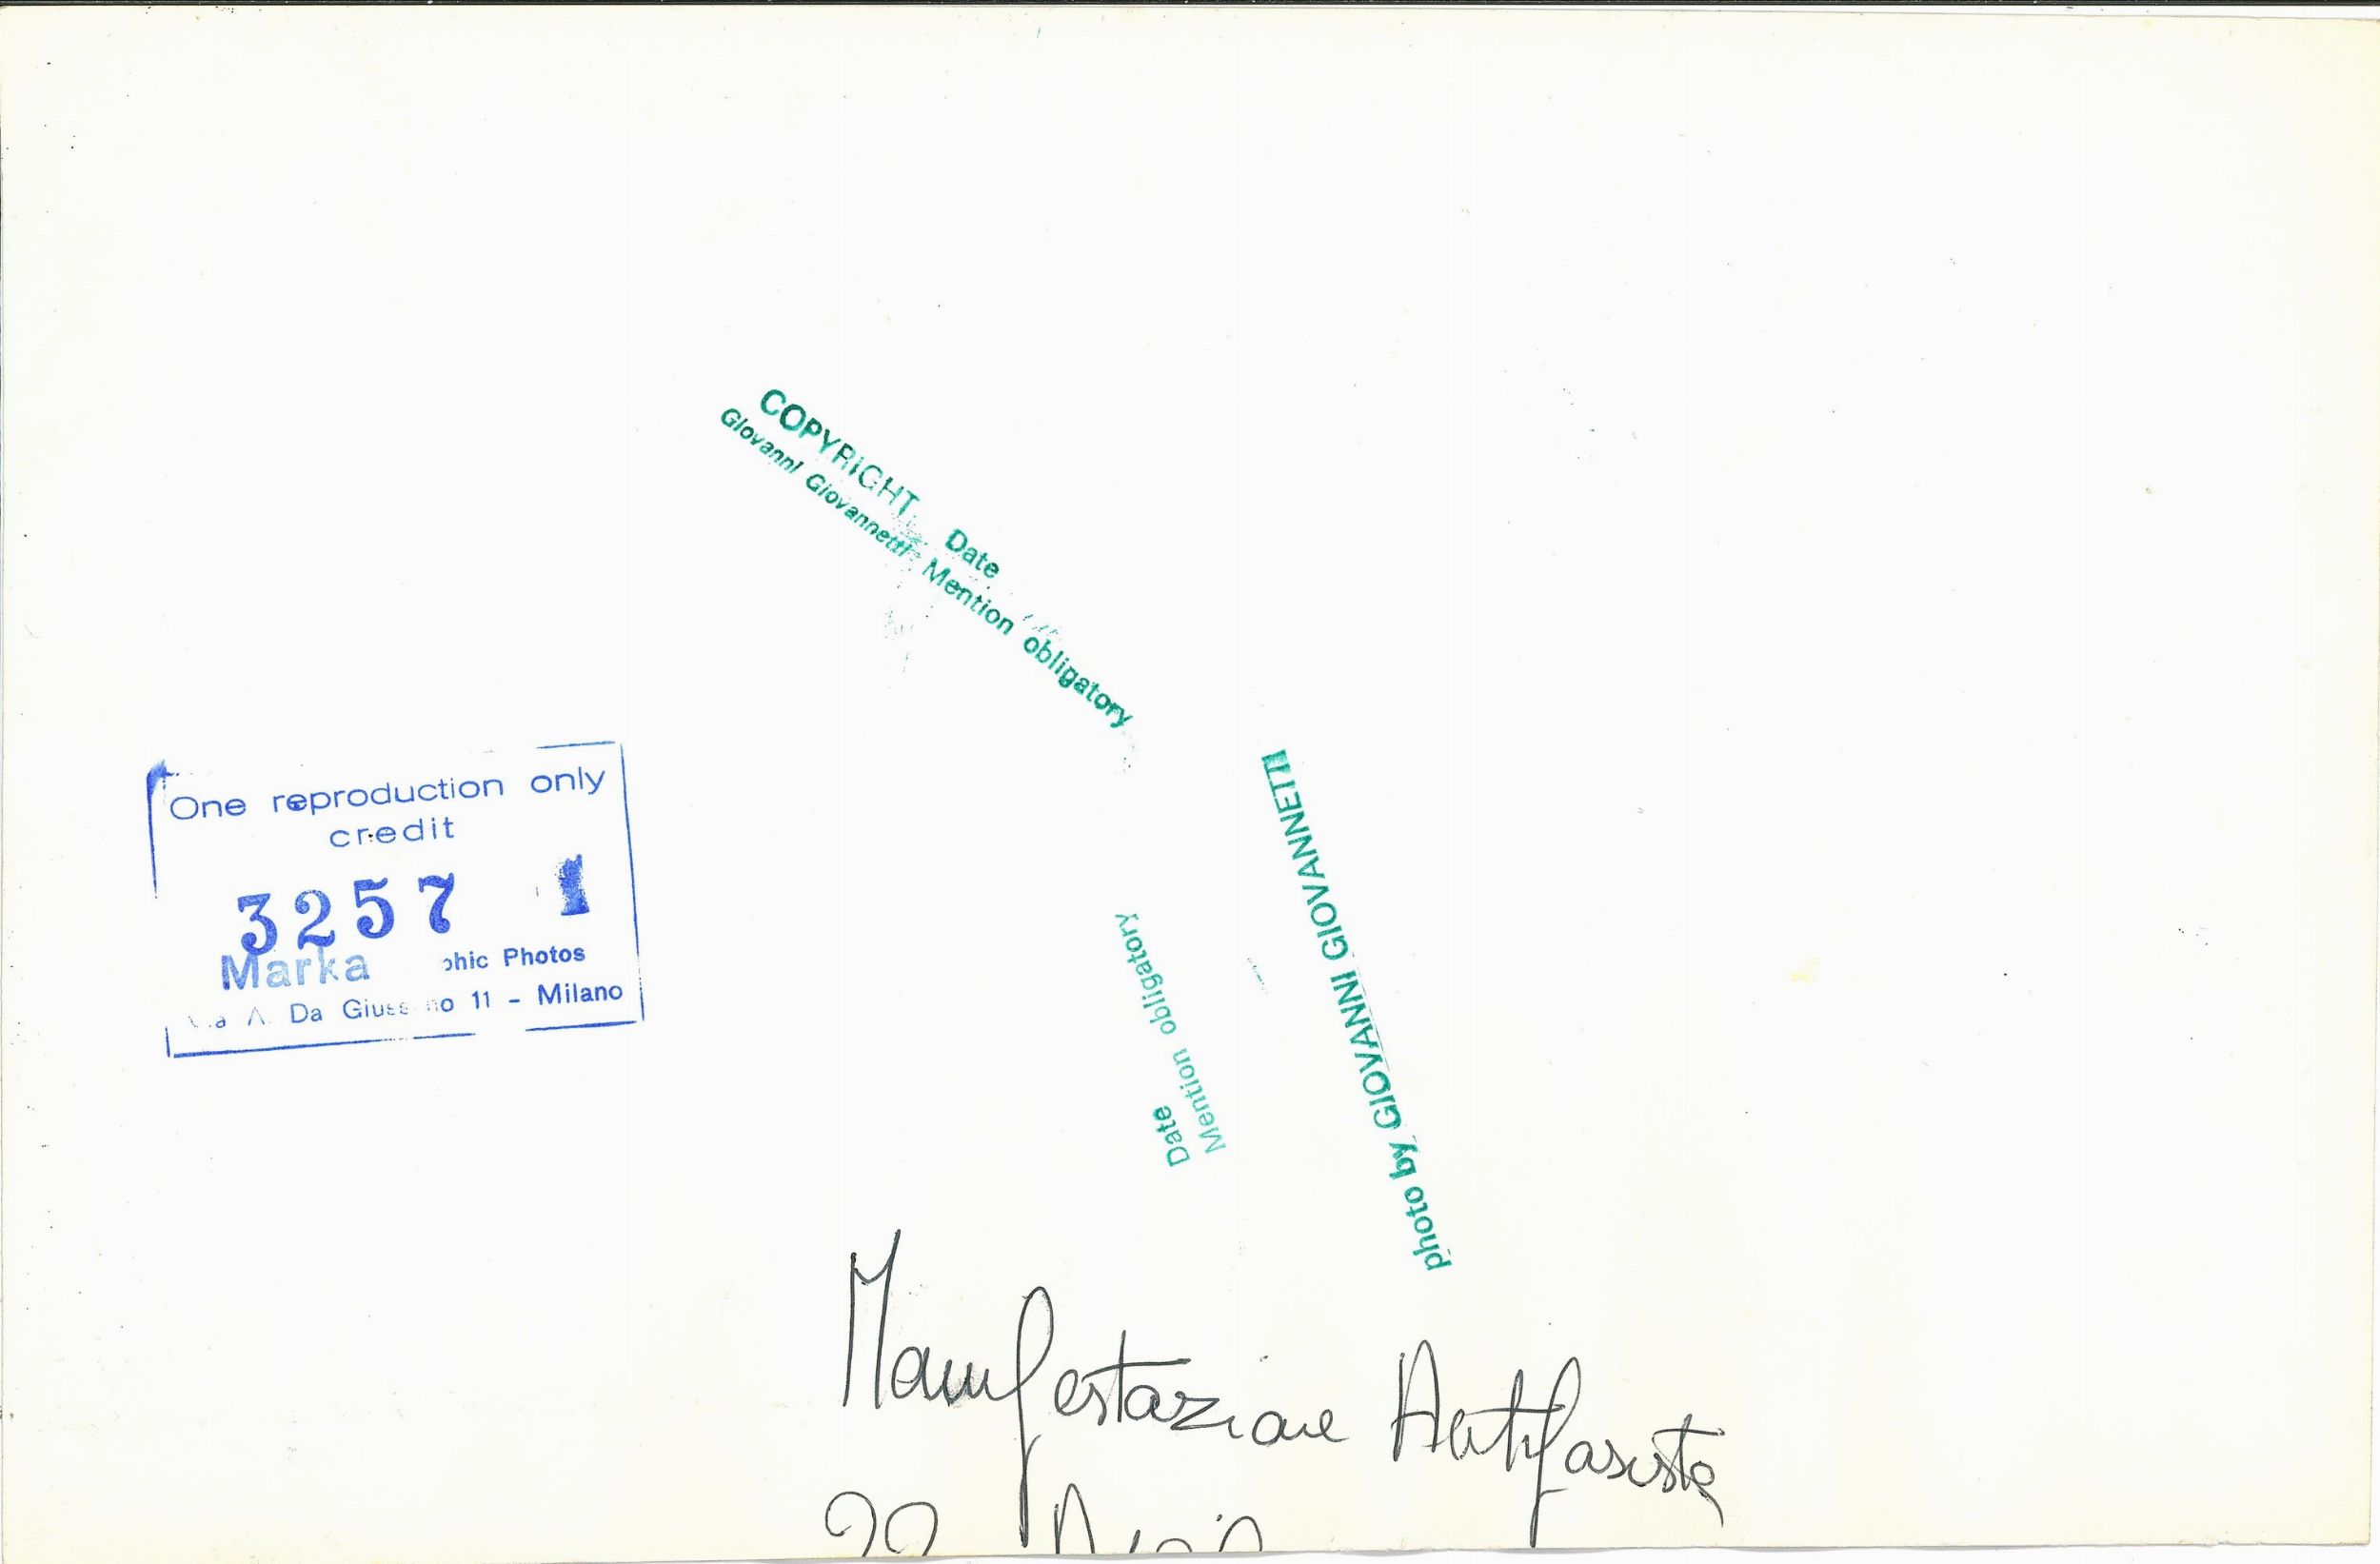 COPYRIGHT Date
Giovanni Giovannetti Mention obligatory
One reproduction only
credit
3257 1
Marka phic Photos
Da 11 - Milano
photo by GIOVANNI GIOVANNETTI
Date
Mention obligatory
Manifestazione Antifascista